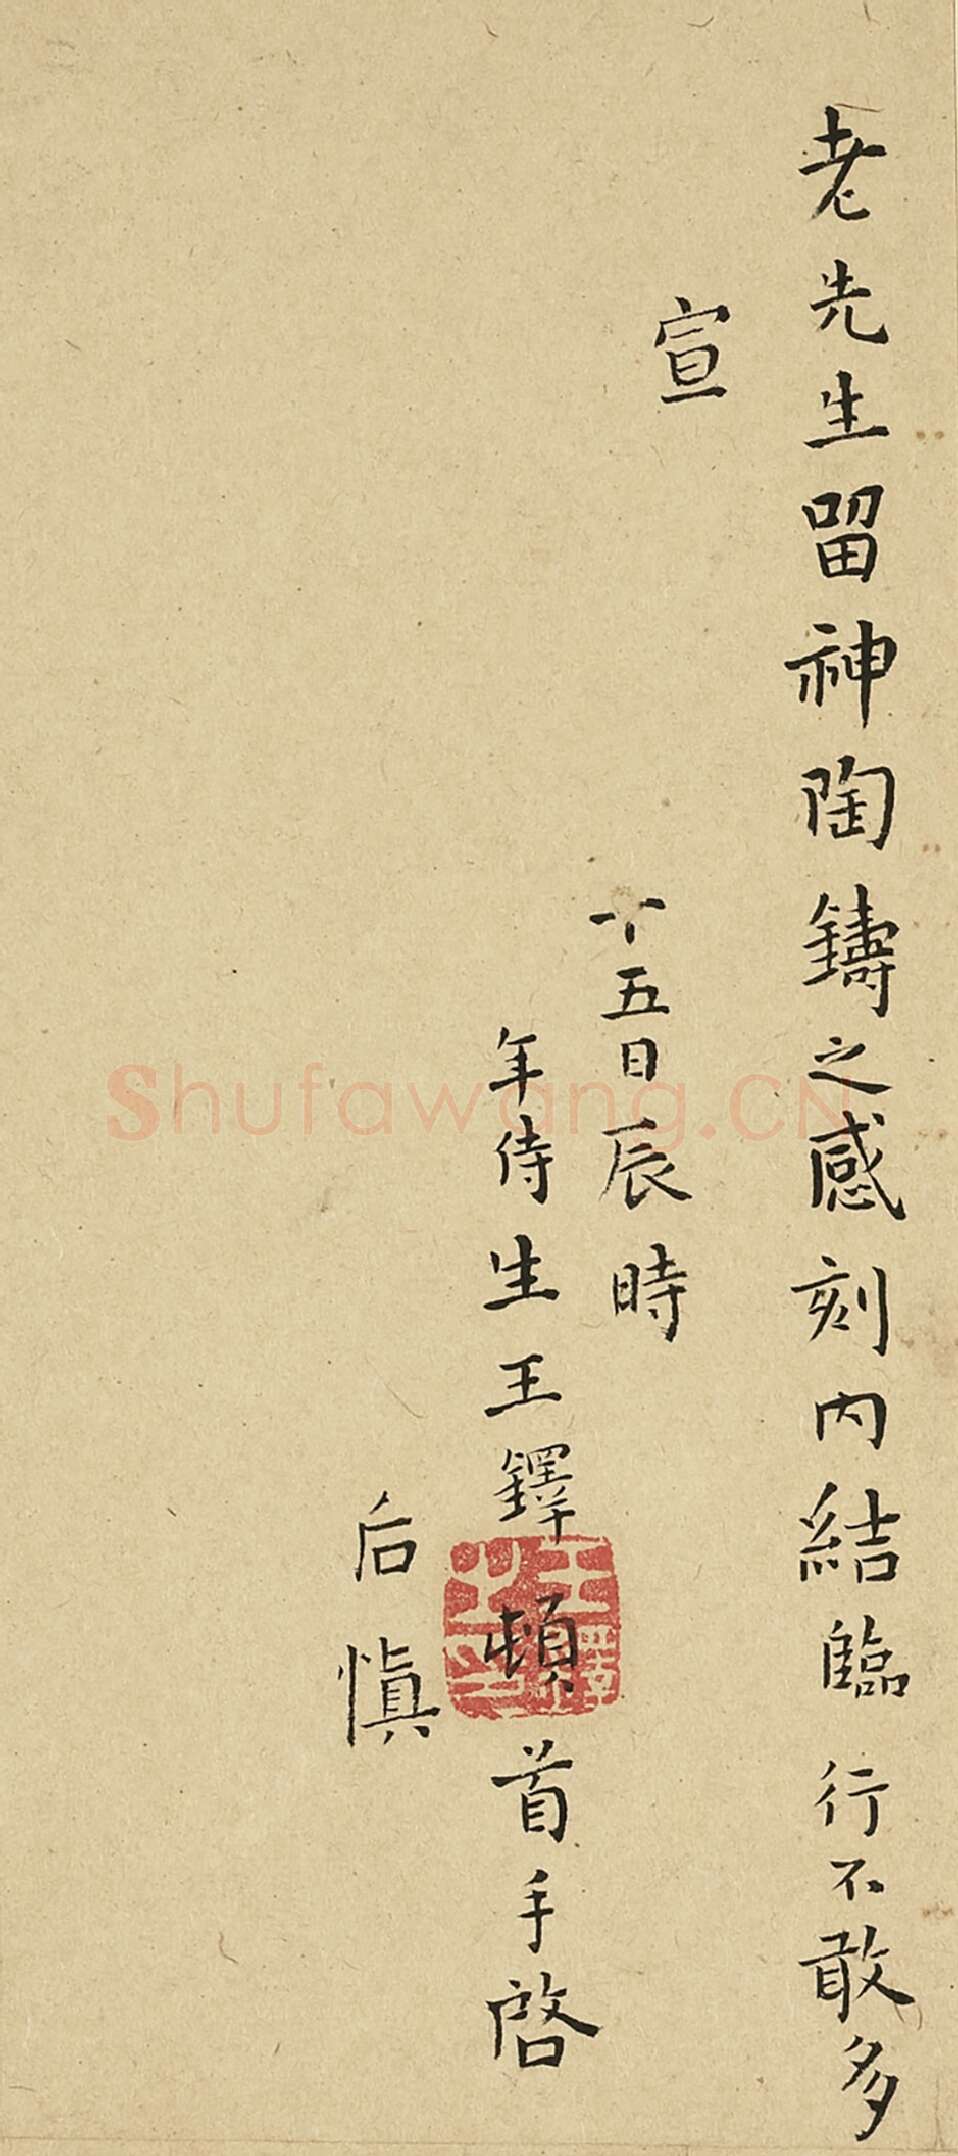 老先生留神陶鑄之感刻內結臨行不敢多
宣
十五日辰時
年侍生王鐸頓首手啓
后慎
Shufawang.CN